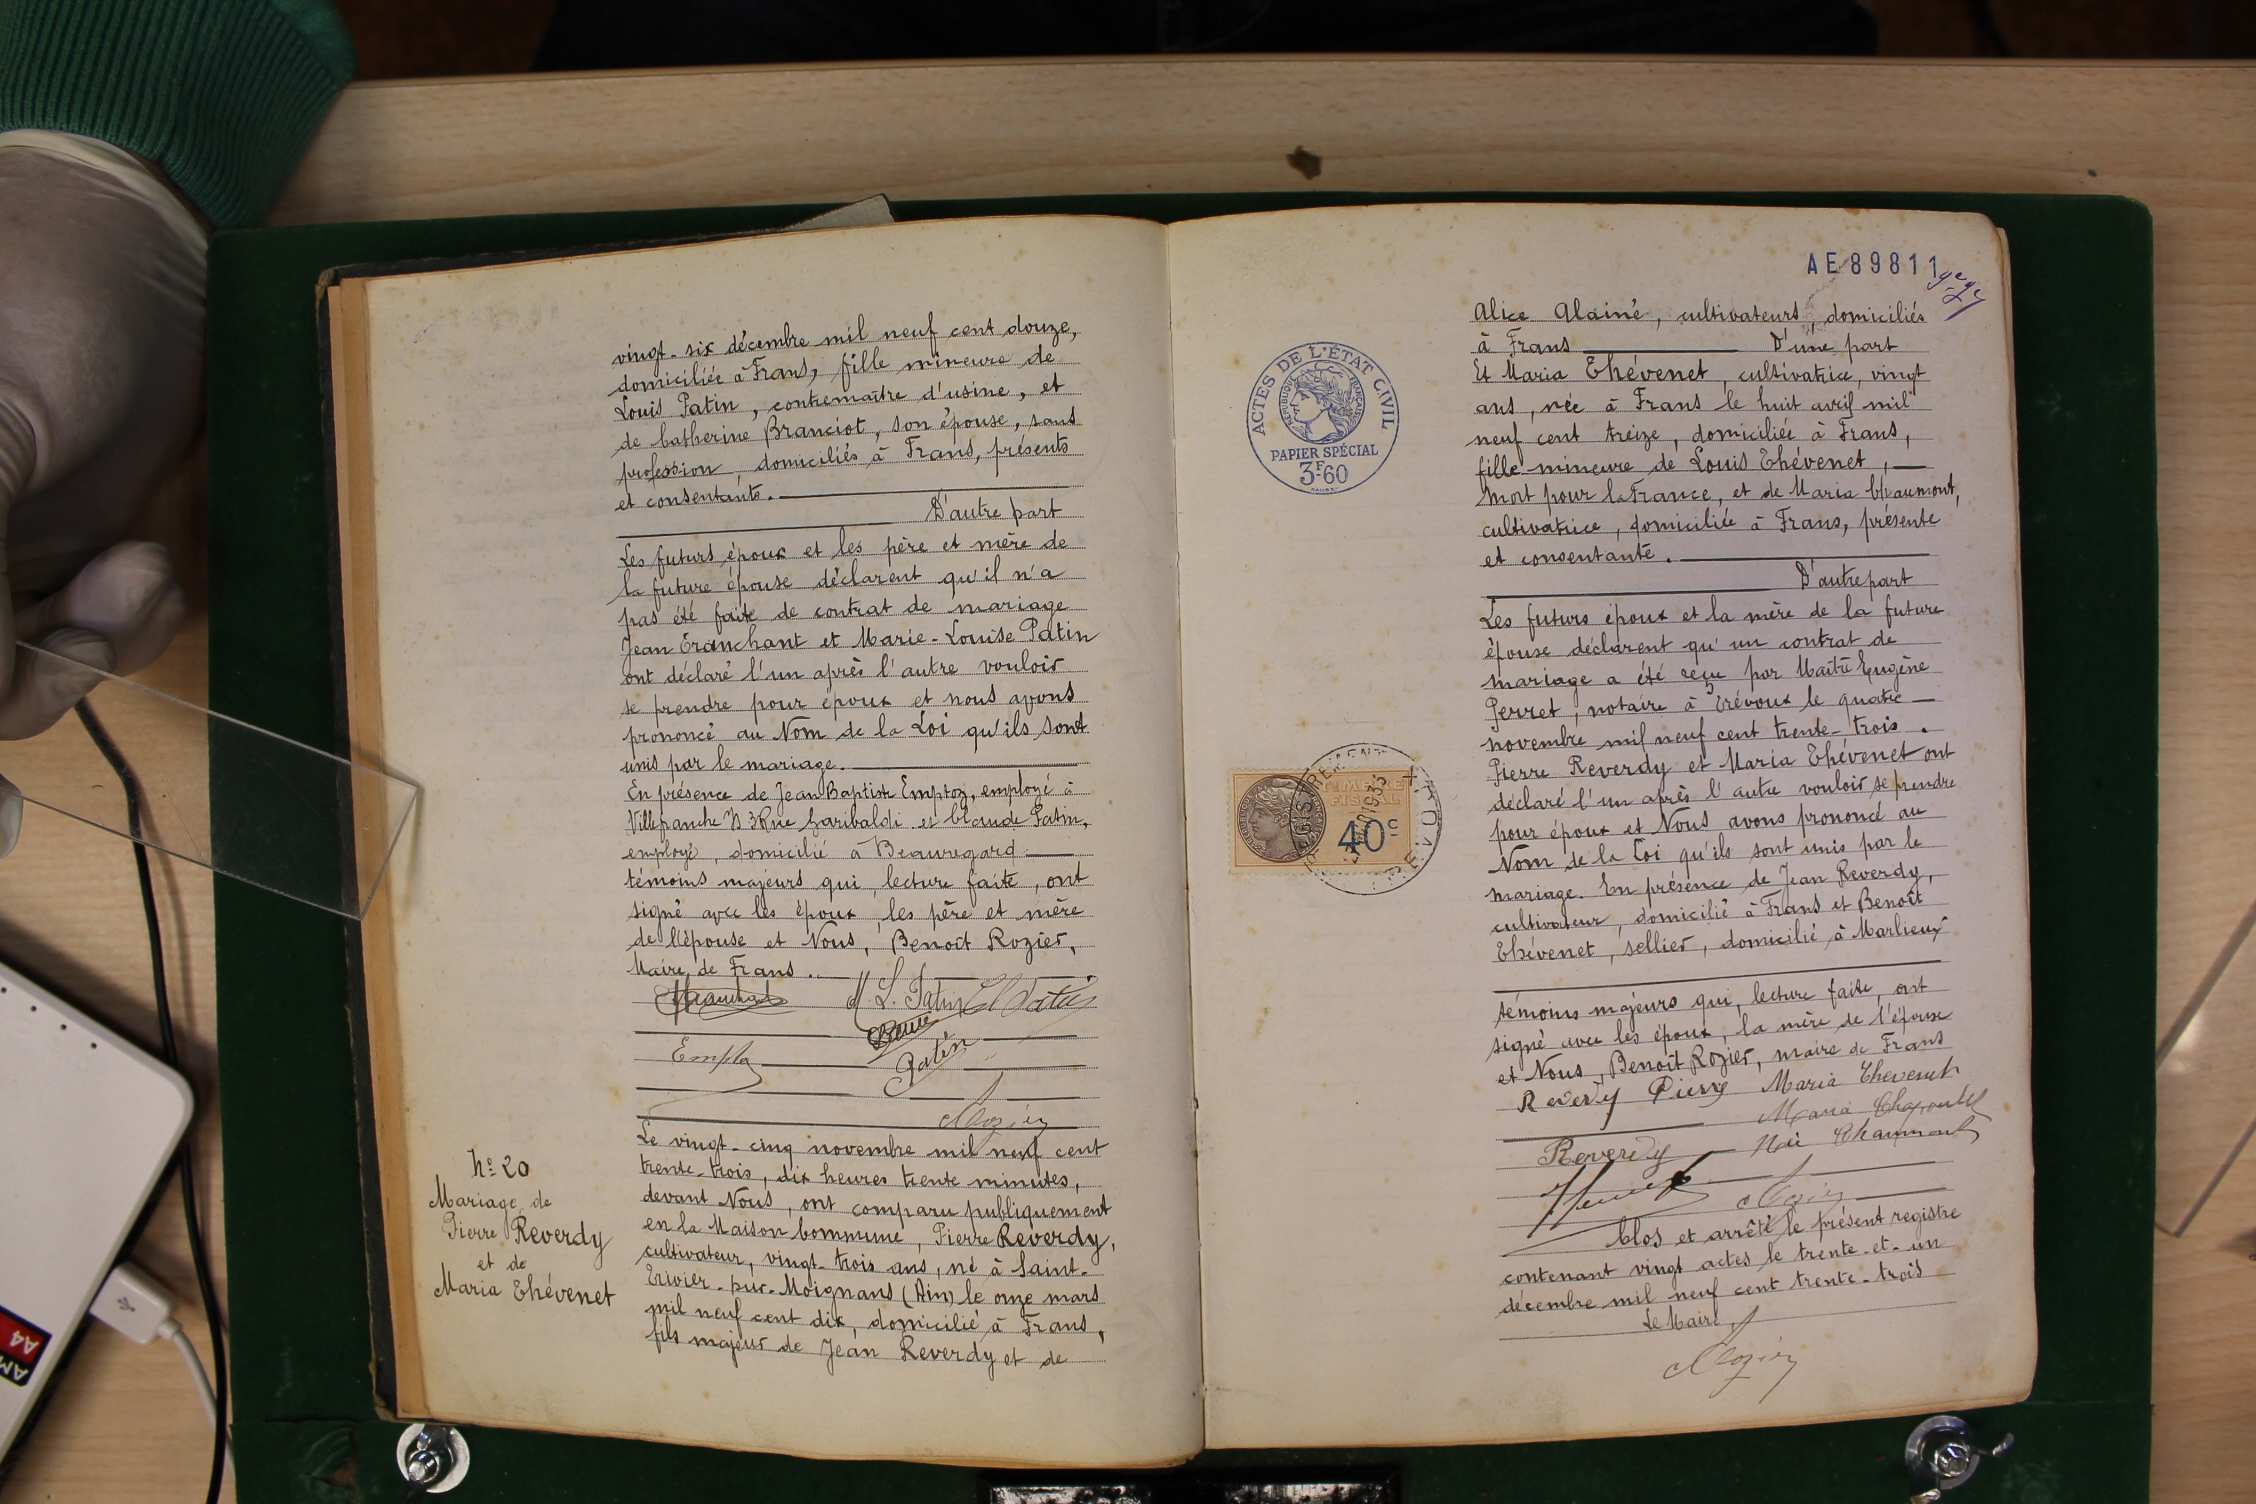 vingt-six décembre mil neuf cent douze,
domiciliée à Frans, fille mineure de
Louis Patin, contremaître d'usine, et
de Catherine Branciot, son épouse, sans
profession, domiciliés à Frans, présents
et consentants.
D'autre part
Les futurs époux et les père et mère de
la future épouse déclarent qu'il n'a
pas été faite de contrat de mariage
Jean Tranchant et Marie-Louise Patin
ont déclaré l'un après l'autre vouloir
se prendre pour époux et nous avons
prononcé au Nom de la Loi qu'ils sont
unis par le mariage.
En présence de Jean Baptiste Emptoz, employé à
Villefranche 3 Rue Garibaldi et Claude Patin,
employé, domicilié à Beauregard
témoins majeurs qui, lecture faite, ont
signé avec les époux, les père et mère
de l'épouse et Nous, Benoît Rozier,
Maire de Frans.
Tranchant M. L. Patin Cl Patin
Patin
Rozier
N° 20
Mariage de
Pierre Reverdy
et de
Maria Thévenet
Le vingt-cinq novembre mil neuf cent
trente-trois, dix heures trente minutes,
devant Nous, ont comparu publiquement
en la Maison Commune, Pierre Reverdy,
cultivateur, vingt-trois ans, né à Saint-
Trivier-sur-Moignans (Ain) le onze mars
mil neuf cent dix, domicilié à Frans,
fils majeur de Jean Reverdy et de
AE89811
ACTES DE L'ÉTAT CIVIL
RÉPUBLIQUE FRANÇAISE
PAPIER SPÉCIAL
3F.60
TIMBRE
FISCAL
40c
Alice Alainé, cultivateurs, domiciliés
à Frans D'une part
Et Maria Thévenet, cultivatrice, vingt
ans, née à Frans le huit avril mil
neuf cent treize, domiciliée à Frans,
fille mineure de Louis Thévenet,
Mort pour la France, et de Maria Chaumont,
cultivatrice, domiciliée à Frans, présente
et consentante.
D'autre part
Les futurs époux et la mère de la future
épouse déclarent qu'un contrat de
mariage a été reçu par Maître Eugène
Perret, notaire à Trévoux le quatre
novembre mil neuf cent trente-trois.
Pierre Reverdy et Maria Thévenet ont
déclaré l'un après l'autre vouloir se prendre
pour époux et Nous avons prononcé au
Nom de la Loi qu'ils sont unis par le
mariage. En présence de Jean Reverdy,
cultivateur, domicilié à Frans et Benoît
Thévenet, sellier, domicilié à Marlieux
témoins majeurs qui, lecture faite, ont
signé avec les époux, la mère de l'épouse
et Nous, Benoît Rozier, maire de Frans
Reverdy Pierre Maria Thevenet
Maria
Reverdy Née Chaumont
Rozier
Clos et arrêté le présent registre
contenant vingt actes le trente-et-un
décembre mil neuf cent trente-trois
Le Maire,
Rozier
A4